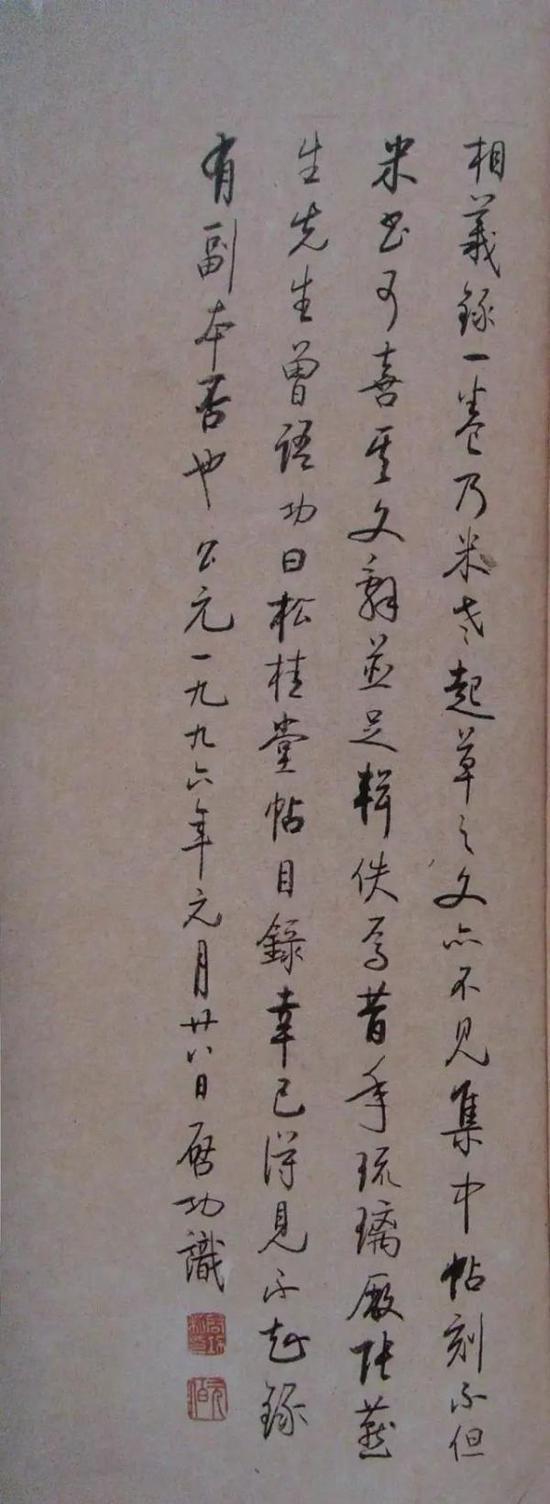 相義錄一卷乃米老起草之文亦不見集中帖刻不但
米书可喜其文辭並足輯佚焉昔年琉璃厰張彦
生先生曾語功曰松桂堂帖目錄幸已得見不知錄
有副本否也公元一九九六年元月廿八日啓功識